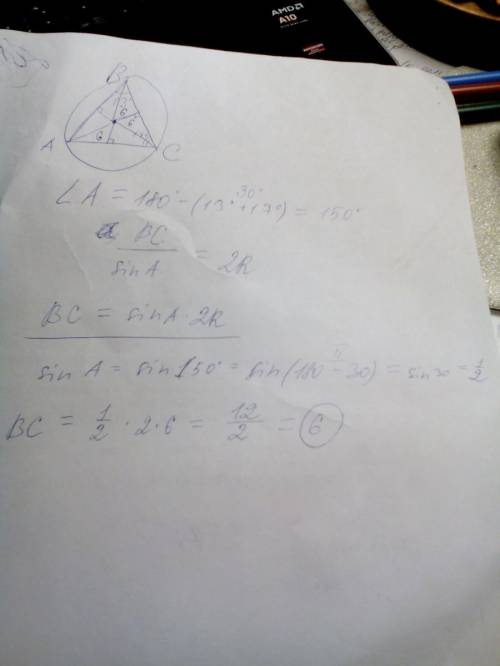 AMD
A10
B
6
6
A
6
C
30°
∠A = 180° - (13° + 17°) = 150°
BC/sinA = 2R
BC = sinA · 2R
II
sin A = sin 150° = sin(180 - 30) = sin 30 = 1/2
BC = 1/2 · 2 · 6 = 12/2 = 6